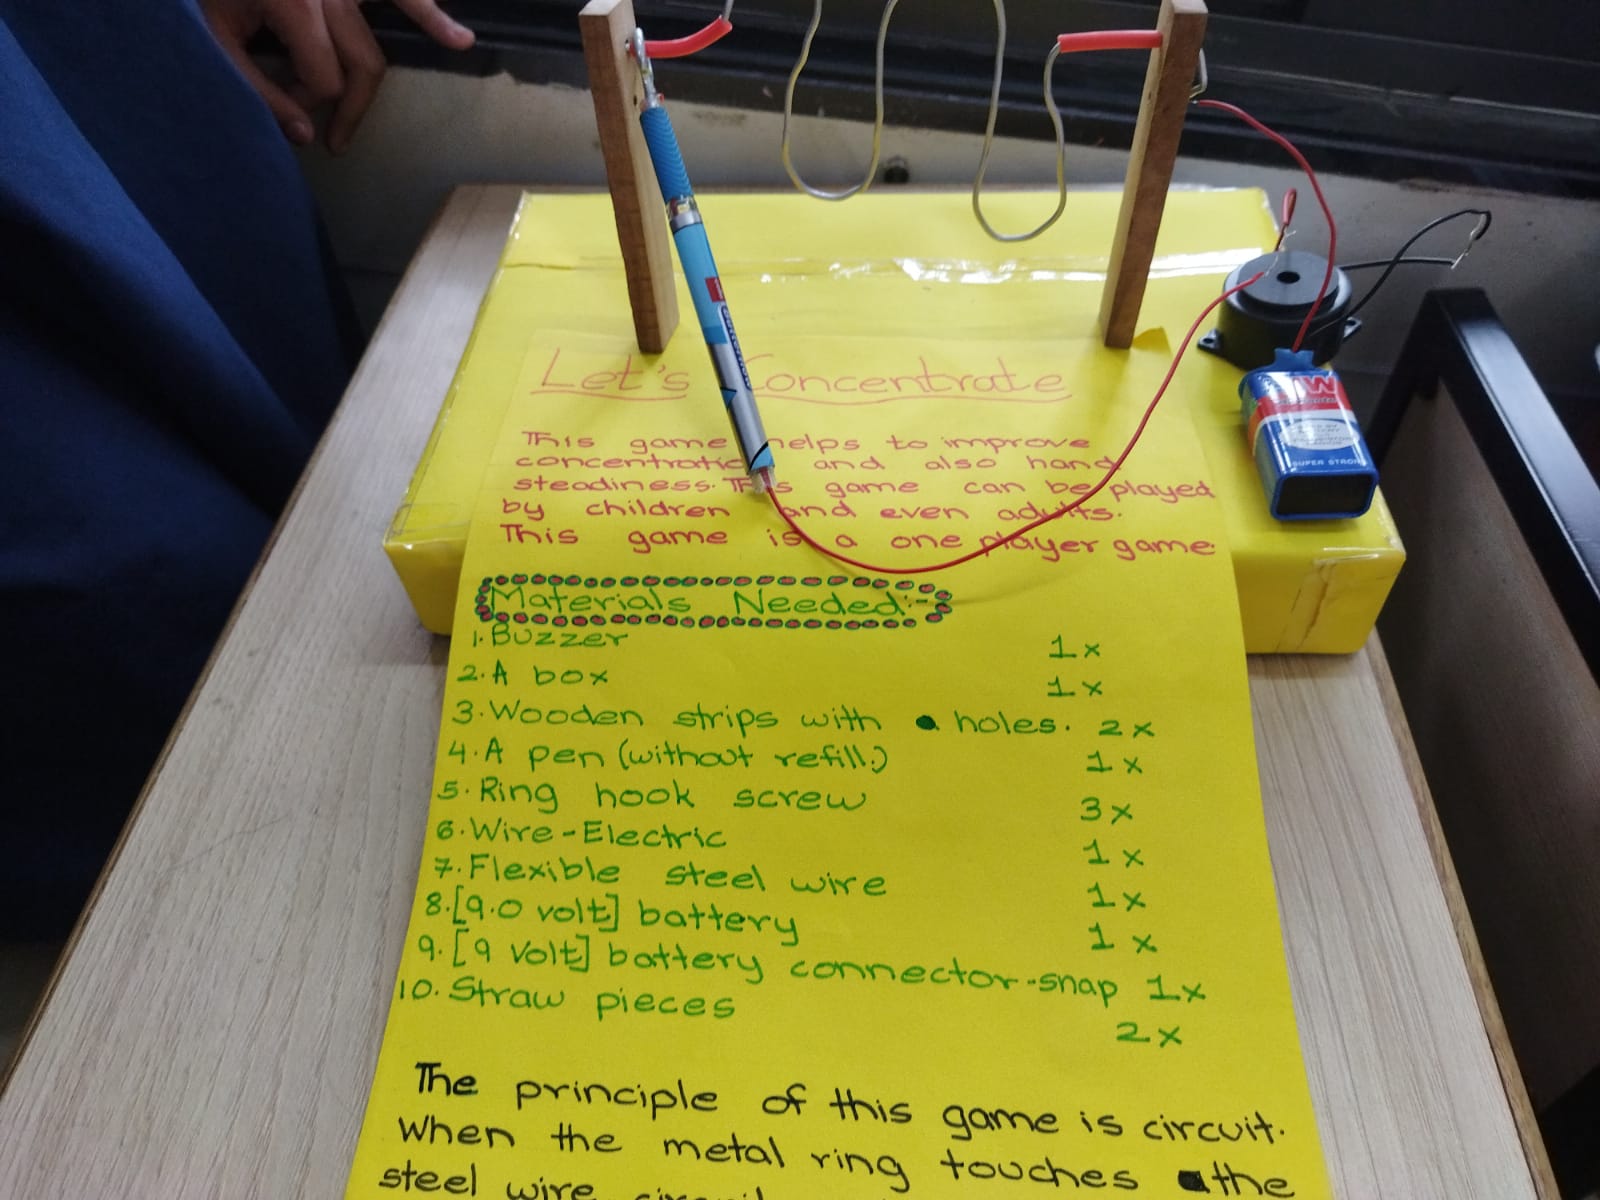 Let's Concentrate
This game helps to improve
concentratio and also hand
steadiness. This game can be played
by children and even adults.
This game is a one player game.
Materials Needed:-
1. Buzzer 1x
2. A box 1x
3. Wooden strips with holes. 2x
4. A pen (without refill.) 1x
5. Ring hook screw 3x
6. Wire-Electric 1x
7. Flexible steel wire 1x
8. [9.0 volt] battery 1x
9. [9 Volt] battery connector-snap 1x
10. Straw pieces 2x
The principle of this game is circuit.
When the metal ring touches the
steel wire circuit
SUPER STRONG